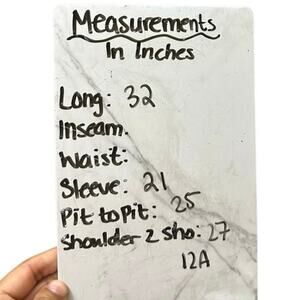 Measurements
In Inches
Long: 32
Inseam.
Waist:
Sleeve: 21
Pit to pit: 25
Shoulder 2 Sho: 27
12A